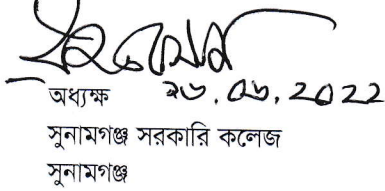 অধ্যক্ষ ২৬.০৬.২০২২
সুনামগঞ্জ সরকারি কলেজ
সুনামগঞ্জ